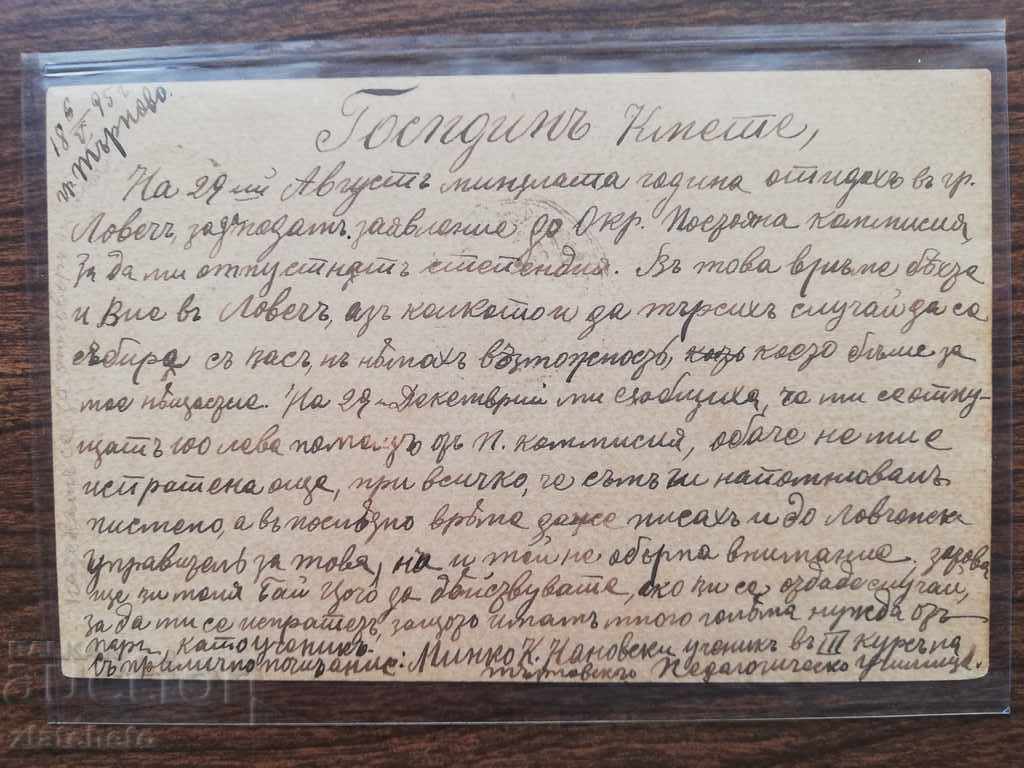 18 6/V 95 г.
гр. Търново.
Господинъ Кмете,
На 29-ий Августъ миналата година отидохъ въ гр.
Ловечъ, за да подамъ заявление до Окр. Постоян. коммисия,
за да ми отпустнятъ степендия. Въ това врѣме бѣхте
и Вие въ Ловечъ, азъ колкото и да търсихъ случай да се
събира съ васъ, нѣ нѣмахъ възможность, което бѣше за
мое нѣщастие. На 29-и Декемврий ми съобщиха, че ми се отпу-
щатъ 100 лева помощь отъ П. коммисия, обаче не ми е
истратена още, при всичко, че съмъ ги напомнювалъ
писмено, а въ послѣдно врѣме даже писахъ и до Ловчански
управитель за това, но и той не обърна внимание, затова
ще ви моля Бай Цочо да дѣйствувате, ако ви се отдаде случай,
за да ми се испратятъ, защото имамъ много голѣма нужда отъ
пари, като ученикъ.
Съ прилично почитание: Минко К. Наковски ученикъ въ III курсъ на
Търновскто Педагогическо училище.
zlatcheto